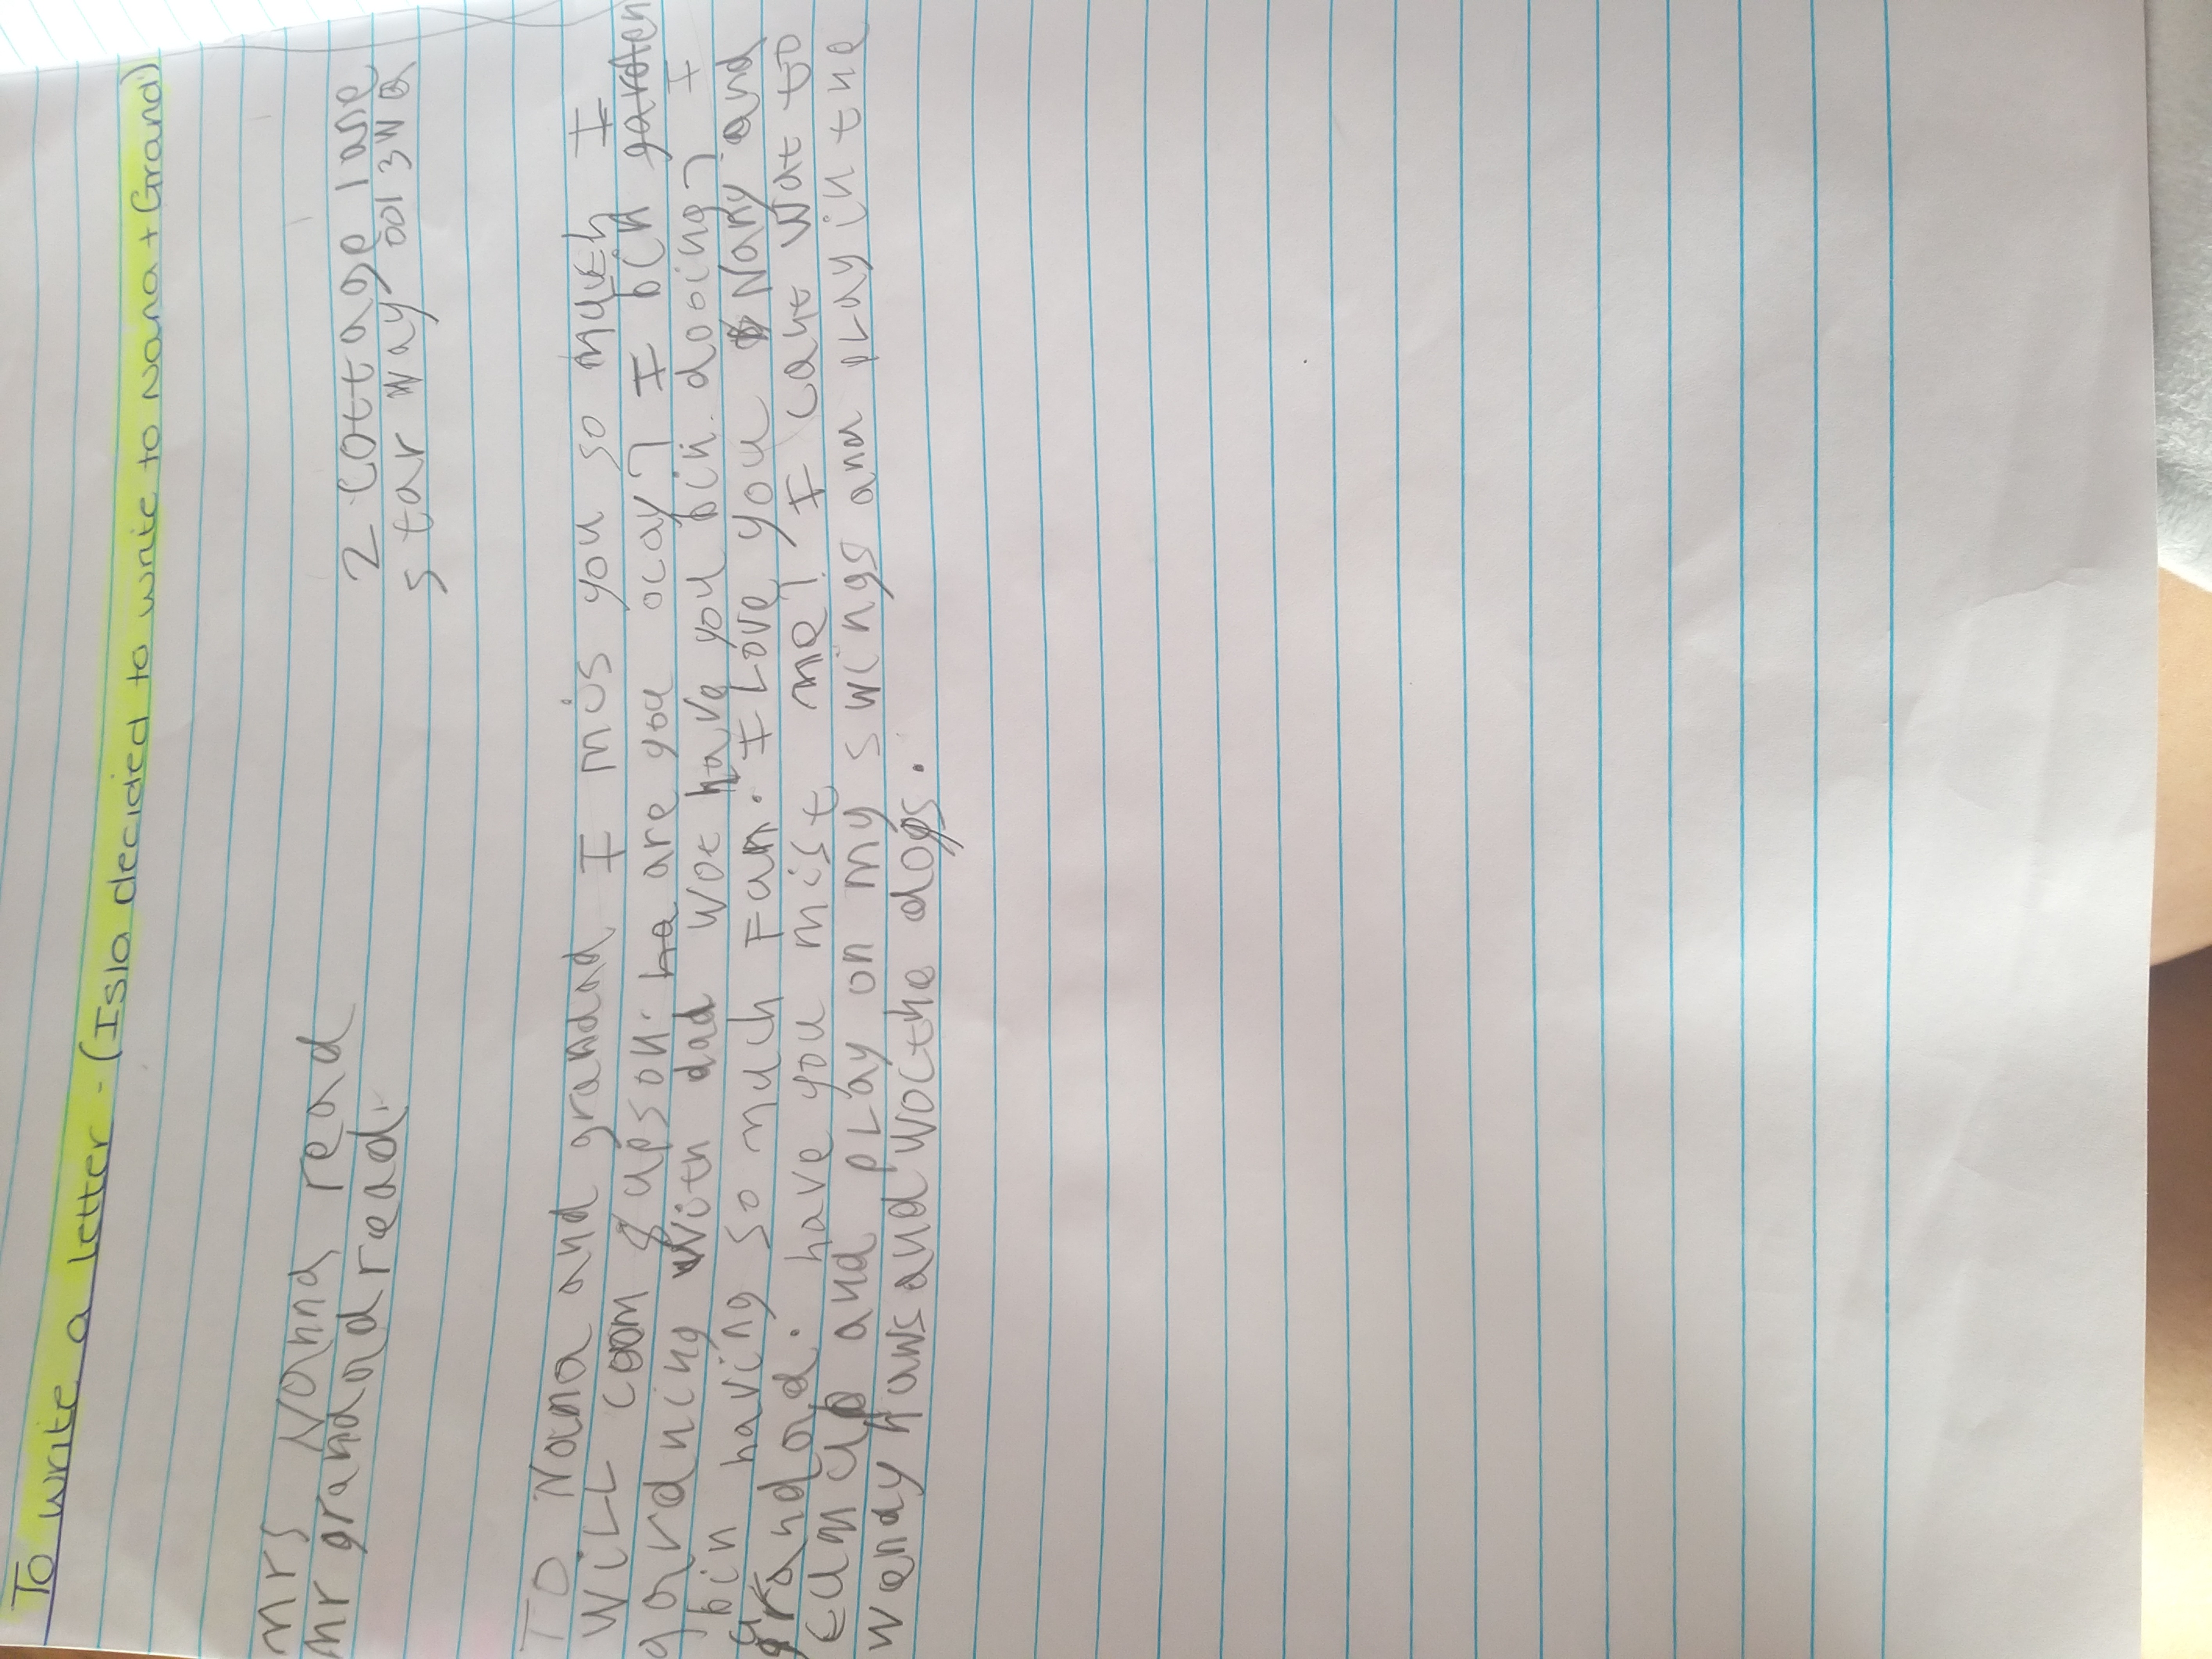 To write a letter - (Isla decided to write to Nana + Grand)
mrs Nanna read
2 Cottage lane
mr grandad read.
star way 001 3WQ
TO Nana and grandad I mis you so much I
Will com upson. are you ocay? I bin
gardning with dad wot have you bin dooing? I
bin having so much Fun. I Love you Nany and
grandad. have you mist me? I cant wat to
cum up and play on my swings and play in the
wendy haws and woc the dogs.